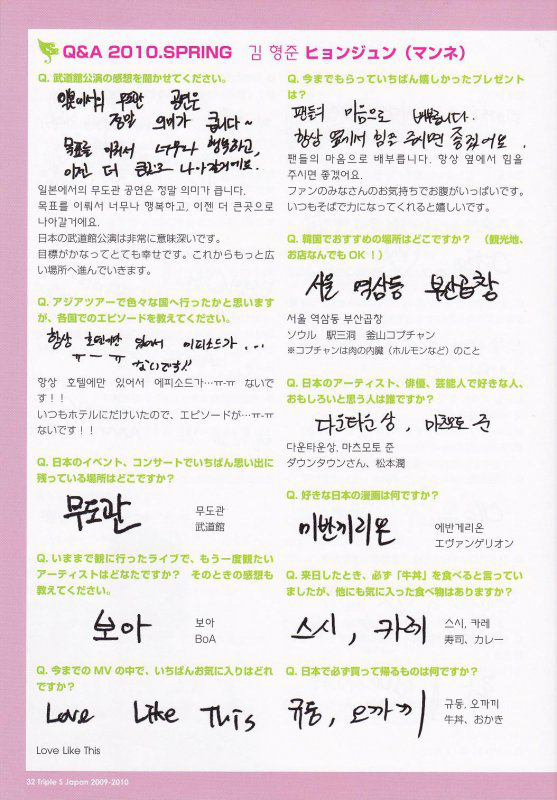 Q&A 2010.SPRING 김 형준 ヒョンジュン（マンネ）
Q. 武道館公演の感想を聞かせてください。
일본에서의 무도관 공연은
정말 의미가 큽니다~
목표를 이뤄서 너무나 행복하고,
이젠 더 큰곳으로 나아갈거에요.
일본에서의 무도관 공연은 정말 의미가 큽니다.
목표를 이뤄서 너무나 행복하고, 이젠 더 큰곳으로
나아갈거에요.
日本の武道館公演は非常に意味深いです。
目標がかなってとても幸せです。これからもっと広
い場所へ進んでいきます。
Q. アジアツアーで色々な国へ行ったかと思います
が、各国でのエピソードを教えてください。
항상 호텔에만 있어서 에피소드가...
ㅠ-ㅠ ないです!!
항상 호텔에만 있어서 에피소드가…ㅠ-ㅠ ないで
す！！
いつもホテルにだけいたので、エピソードが…ㅠ-ㅠ
ないです！！
Q. 日本のイベント、コンサートでいちばん思い出に
残っている場所はどこですか？
무도관
무도관
武道館
Q. いままで観に行ったライブで、もう一度観たい
アーティストはどなたですか？ そのときの感想も
教えてください。
보아
보아
BoA
Q. 今までの MV の中で、いちばんお気に入りはどれ
ですか？
Love Like This
Love Like This
Q. 今までもらっていちばん嬉しかったプレゼント
は？
팬들의 마음으로 배부릅니다.
항상 옆에서 힘을 주시면 좋겠어요.
팬들의 마음으로 배부릅니다. 항상 옆에서 힘을
주시면 좋겠어요.
ファンのみなさんのお気持ちでお腹がいっぱいです。
いつもそばで力になってくれると嬉しいです。
Q. 韓国でおすすめの場所はどこですか？ （観光地、
お店なんでもOK！）
서울 역삼동 부산곱창
서울 역삼동 부산곱창
ソウル 駅三洞 釜山コプチャン
※コプチャンは肉の内臓（ホルモンなど）のこと
Q. 日本のアーティスト、俳優、芸能人で好きな人、
おもしろいと思う人は誰ですか？
다운타운상, 마츠모토 준
다운타운상, 마츠모토 준
ダウンタウンさん、松本潤
Q. 好きな日本の漫画は何ですか？
에반게리온
에반게리온
エヴァンゲリオン
Q. 来日したとき、必ず「牛丼」を食べると言ってい
ましたが、他にも気に入った食べ物はありますか？
스시, 카레
스시, 카레
寿司、カレー
Q. 日本で必ず買って帰るものは何ですか？
규동, 오까끼
규동, 오까끼
牛丼、おかき
32 Triple S Japan 2009-2010